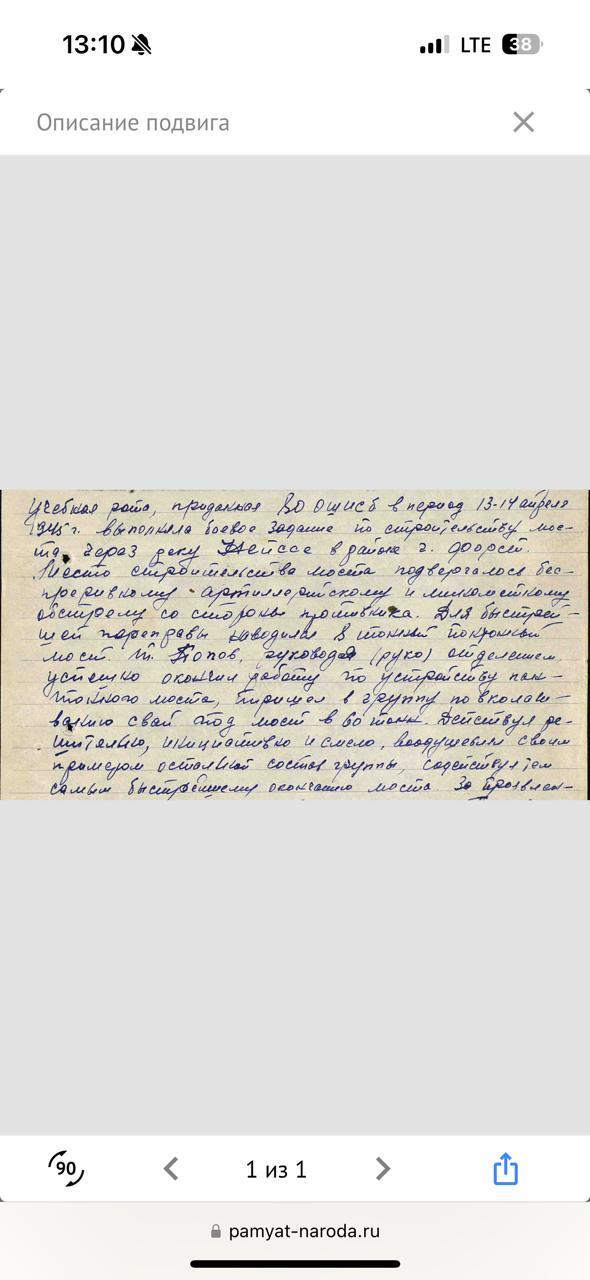 13:10
LTE 38
Описание подвига
Учебная рота, приданная 80 ОШИСБ в период 13-14 апреля
1945 г. выполняла боевое задание по строительству мос-
та через реку Нейссе в районе г. Форст.
Место строительства моста подвергалось бес-
прерывному артиллерийскому и минометному
обстрелу со стороны противника. Для быстрей-
шей переправы наводился 8 тонный понтонный
мост. т. Попов, руководя (руко) отделением,
успешно окончил работу по устройству пон-
тонного моста, пришел в группу по вколачи-
ванию свай под мост в 60 тонн. Действуя ре-
шительно, инициативно и смело, воодушевлял своим
примером остальной состав группы, содействуя тем
самым быстрейшему окончанию моста. За проявлен-
90
1 из 1
pamyat-naroda.ru